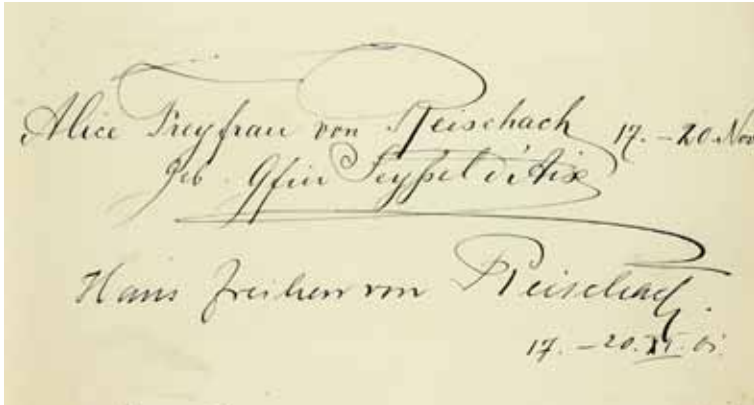 Alice Freyfrau von Reischach 17. – 20. Nov
geb. Gfin Seyßel d'Aix
Hans Freiherr von Reischach.
17. – 20. XI. 01.